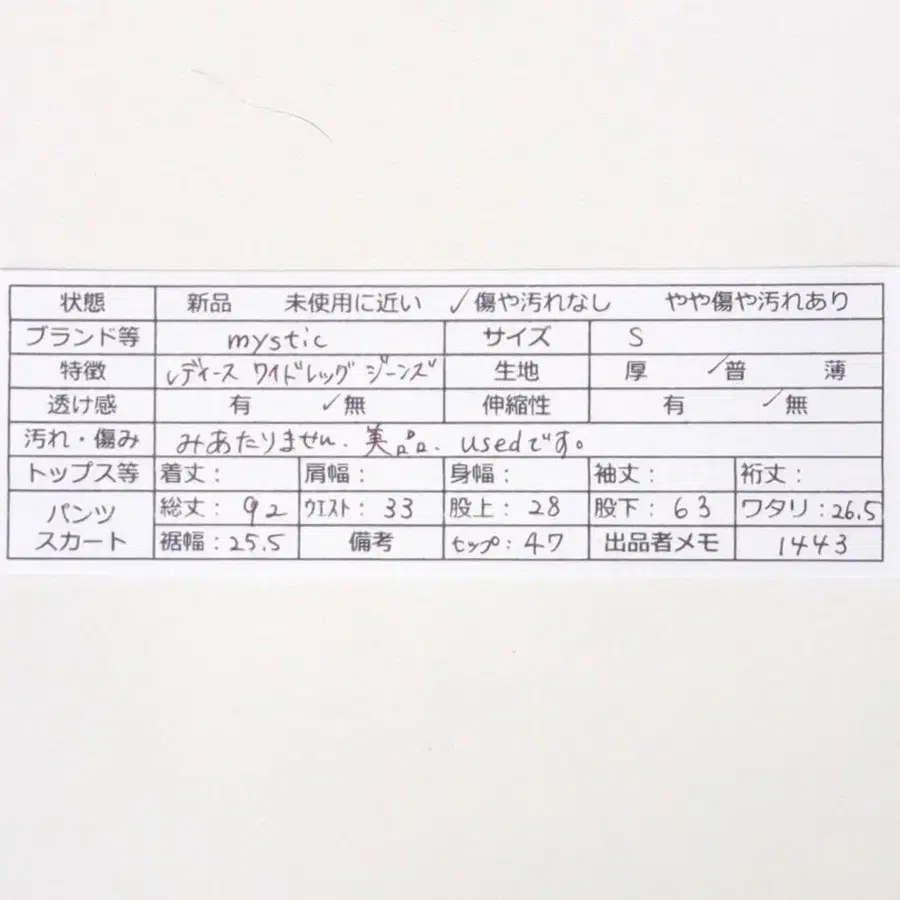 状態 新品 未使用に近い ✓傷や汚れなし やや傷や汚れあり
ブランド等 mystic サイズ S
特徴 レディース ワイドレッグ ジーンズ 生地 厚 ✓普 薄
透け感 有 ✓無 伸縮性 有 ✓無
汚れ・傷み みあたりません、美品、usedです。
トップス等 着丈： 肩幅： 身幅： 袖丈： 裄丈：
パンツ スカート 総丈：92 ウエスト：33 股上：28 股下：63 ワタリ：26.5
裾幅：25.5 備考 ヒップ：47 出品者メモ 1443